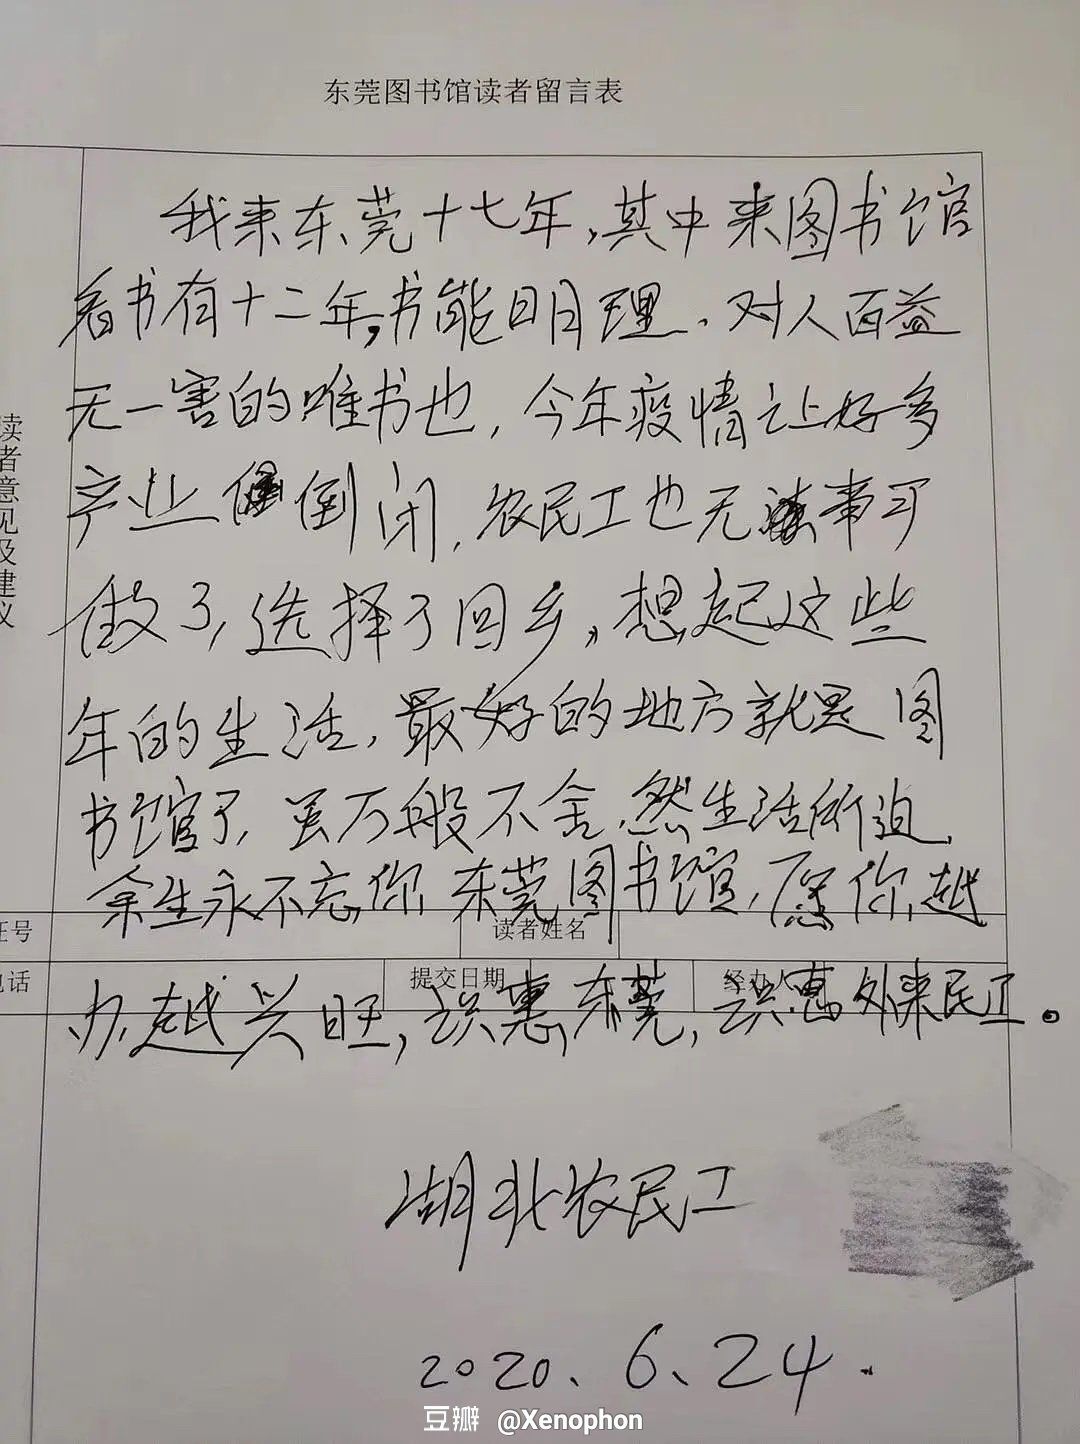 东莞图书馆读者留言表
读者意见及建议
我来东莞十七年，其中来图书馆
看书有十二年，书能明理、对人百益
无一害的唯书也，今年疫情让好多
产业倒闭，农民工也无事可
做了，选择了回乡，想起这些
年的生活，最好的地方就是图
书馆了，虽万般不舍，然生活所迫，
余生永不忘你，东莞图书馆，愿你越
证号
读者姓名
电话
提交日期
经办人
办越兴旺，识惠东莞，识惠外来民工。
湖北农民工
2020、6、24.
豆瓣 @Xenophon